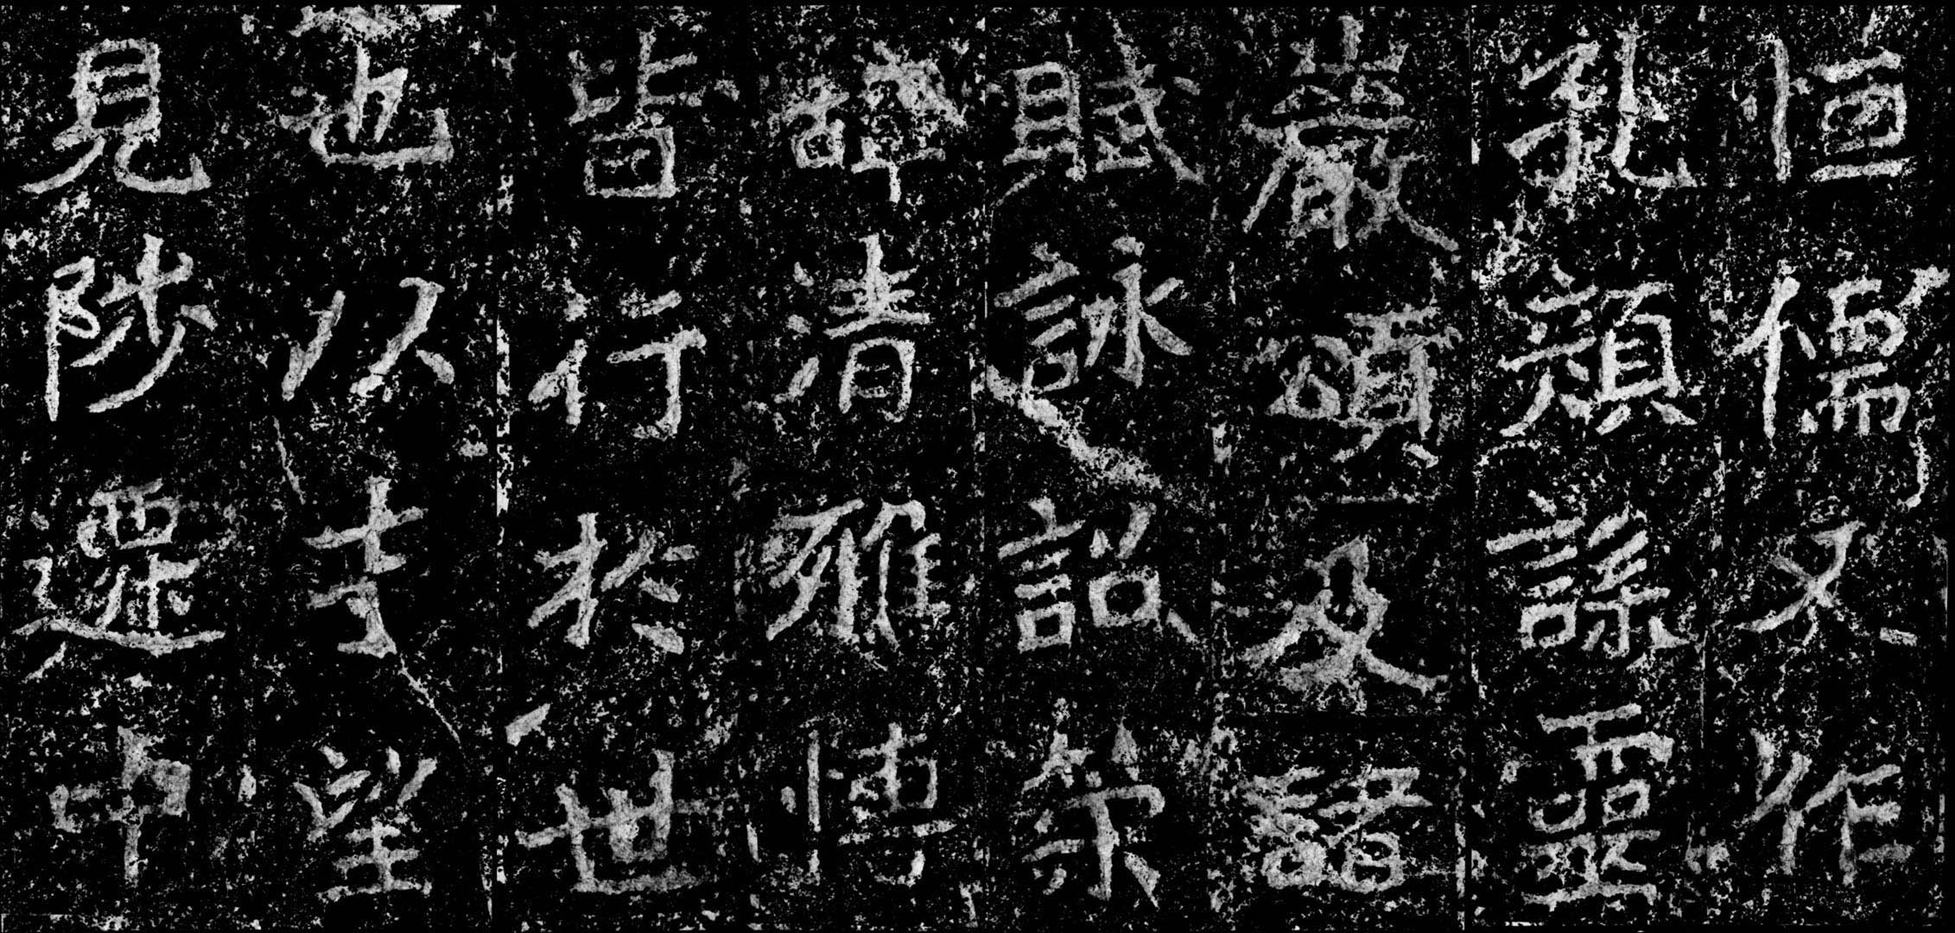 恒儒又作
孔顏誄靈
巖頌及諸
賦詠詔策
辭清雅博
皆行於世
也以才望
見陟遷中